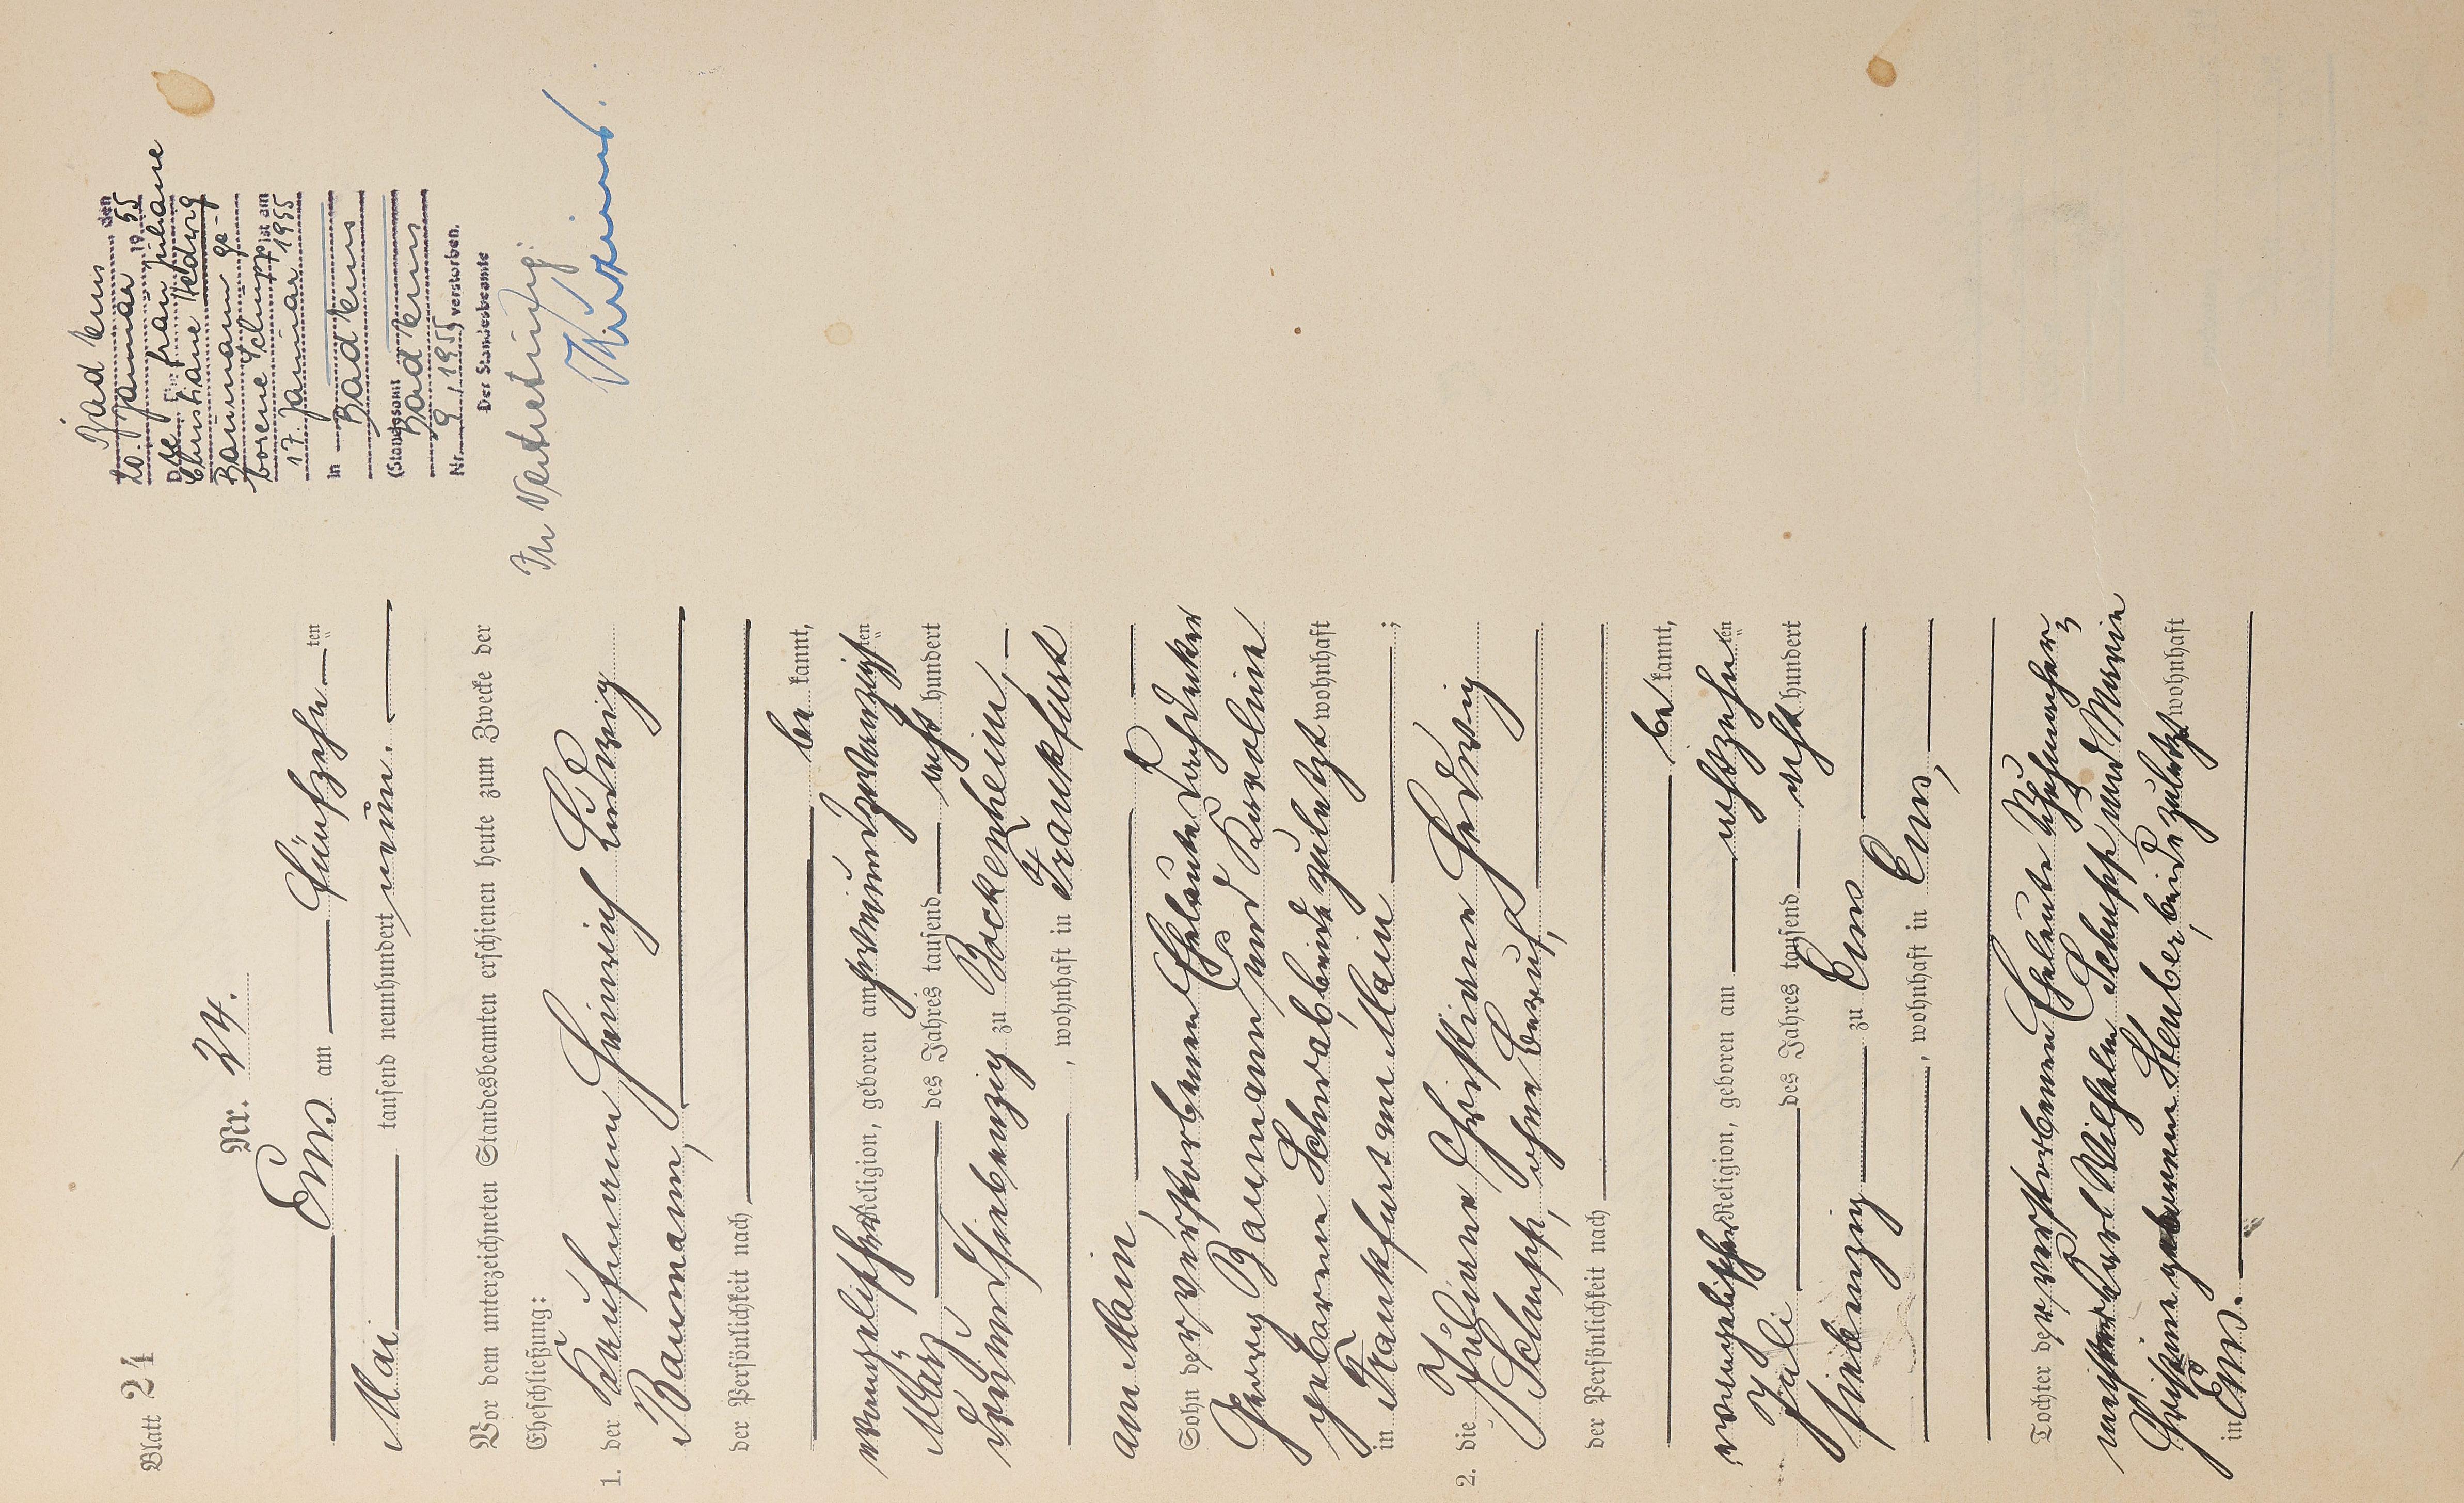 Blatt 24
Nr. 24.
Ems am fünfzehn ten
Mai tausend neunhundert neun.
Vor dem unterzeichneten Standesbeamten erschienen heute zum Zwecke der
Eheschließung:
1. der Kaufmann Heinrich Ludwig
Baumann,
der Persönlichkeit nach
be kannt,
evangelischer Religion, geboren am zweiundzwanzigsten
März des Jahres tausend acht hundert
dreiundsiebenzig zu Bockenheim,
, wohnhaft in Frankfurt
am Main,
Sohn der verstorbenen Eheleute Dachdecker
Georg Baumann und Karoline
geborene Schwab, beide zuletzt wohnhaft
in Frankfurt am Main ;
2. die Juliane Christiane Hedwig
Schupp, ohne Beruf,
der Persönlichkeit nach
be kannt,
evangelischer Religion, geboren am achtzehn ten
Juli des Jahres tausend acht hundert
siebenzig zu Ems
, wohnhaft in Ems,
Tochter der verstorbenen Eheleute Schuhmacher-
meister Karl Wilhelm Schupp und Marie
Christine geborenen Steuber, beide zuletzt wohnhaft
in Ems.
Bad Ems den
20. Januar 1955
Die Frau Juliane
Christiane Hedwig
Baumann ge-
borene Schupp ist am
17. Januar 1955
in Bad Ems
(Standesamt
Bad Ems
Nr. 9 / 1955) verstorben.
Der Standesbeamte
In Vertretung: